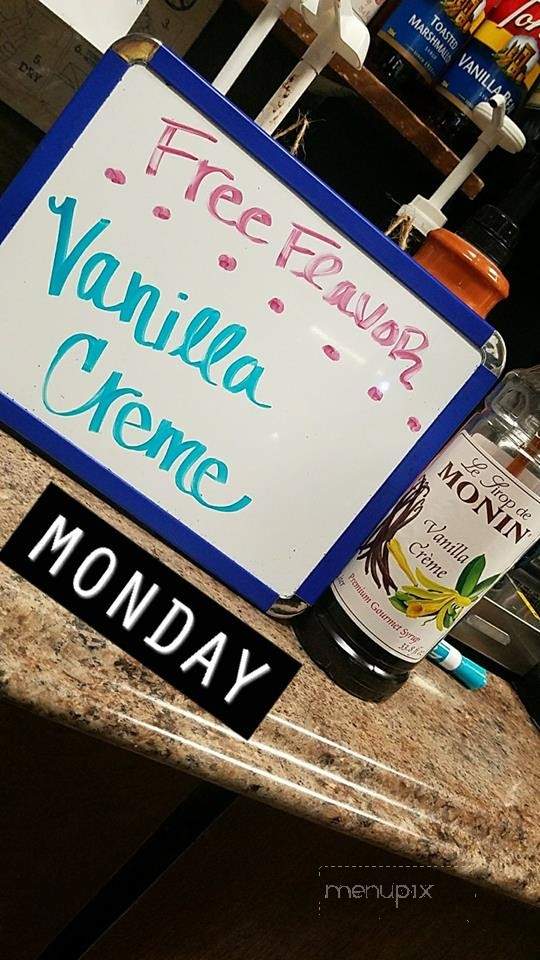 Free Flavor
Vanilla
Creme
MONDAY
TOASTED
MARSHMALLOW
SYRUP
VANILLA
Le Sirop de
MONIN
Vanilla
Crème
Premium Gourmet Syrup
33.8 fl
DRY
menupix